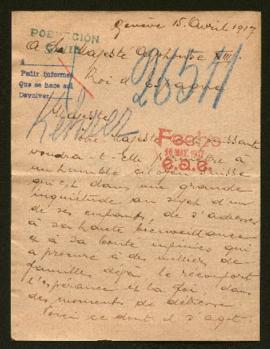 Genève 15. Avril 1917
A Sa Majesté Alphonse XIII
Roi d'Espagne
POBLACIÓN
CIVIL
A
Pedir informes
Que se hace así
Devolver
26511
Sire
Votre Majesté
voudra-t-Elle permettre à
un humble citoyen suisse
qui est dans une grande
inquiétude au sujet d'un
de ses enfants, de s'adresser
à sa haute bienveillance
et à sa bonté infinies qui
a procuré à des milliers de
familles déjà le réconfort
l'espérance et la foi dans
des moments de détresse.
Voici ce dont il s'agit.
Fecho
16 MAY. 1917